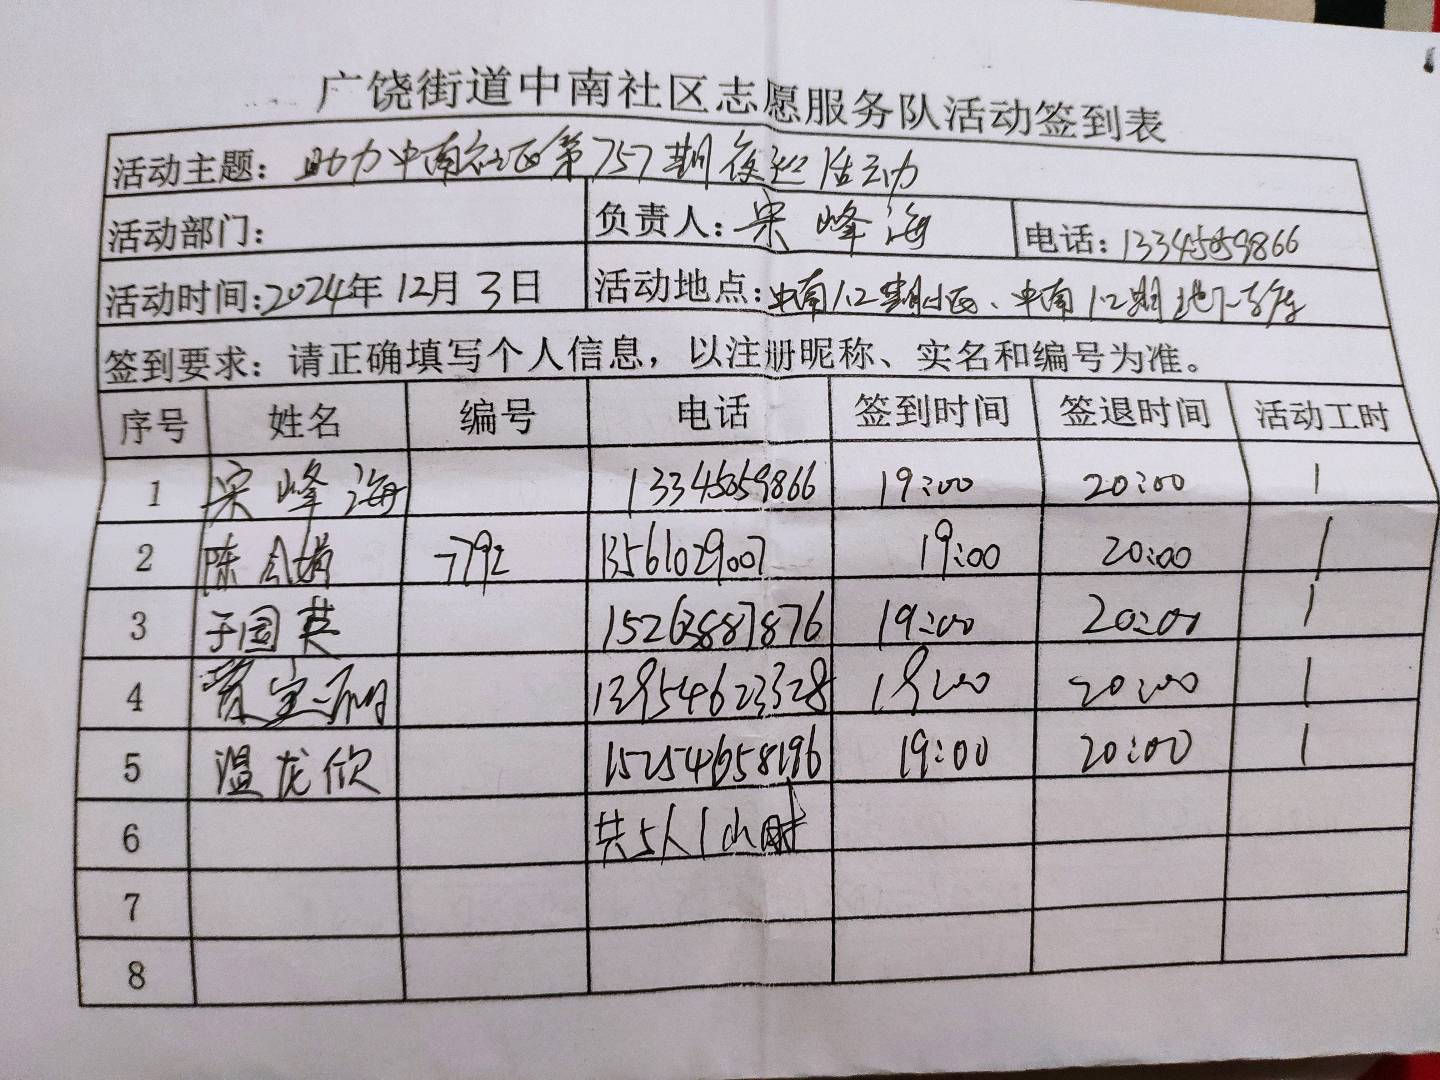 广饶街道中南社区志愿服务队活动签到表
活动主题：助力中南社区第757期夜巡活动
活动部门： 负责人：宋峰海 电话：13345059866
活动时间：2024年12月3日 活动地点：中南1.2期小区、中南1.2期地下车库
签到要求：请正确填写个人信息，以注册昵称、实名和编号为准。
序号 姓名 编号 电话 签到时间 签退时间 活动工时
1 宋峰海 13345059866 19:00 20:00 1
2 陈 7792 13561029007 19:00 20:00 1
3 于国英 15263887876 19:00 20:00 1
4 13954623328 19:00 20:00 1
5 温龙欣 15254658196 19:00 20:00 1
6 共5人1小时
7
8